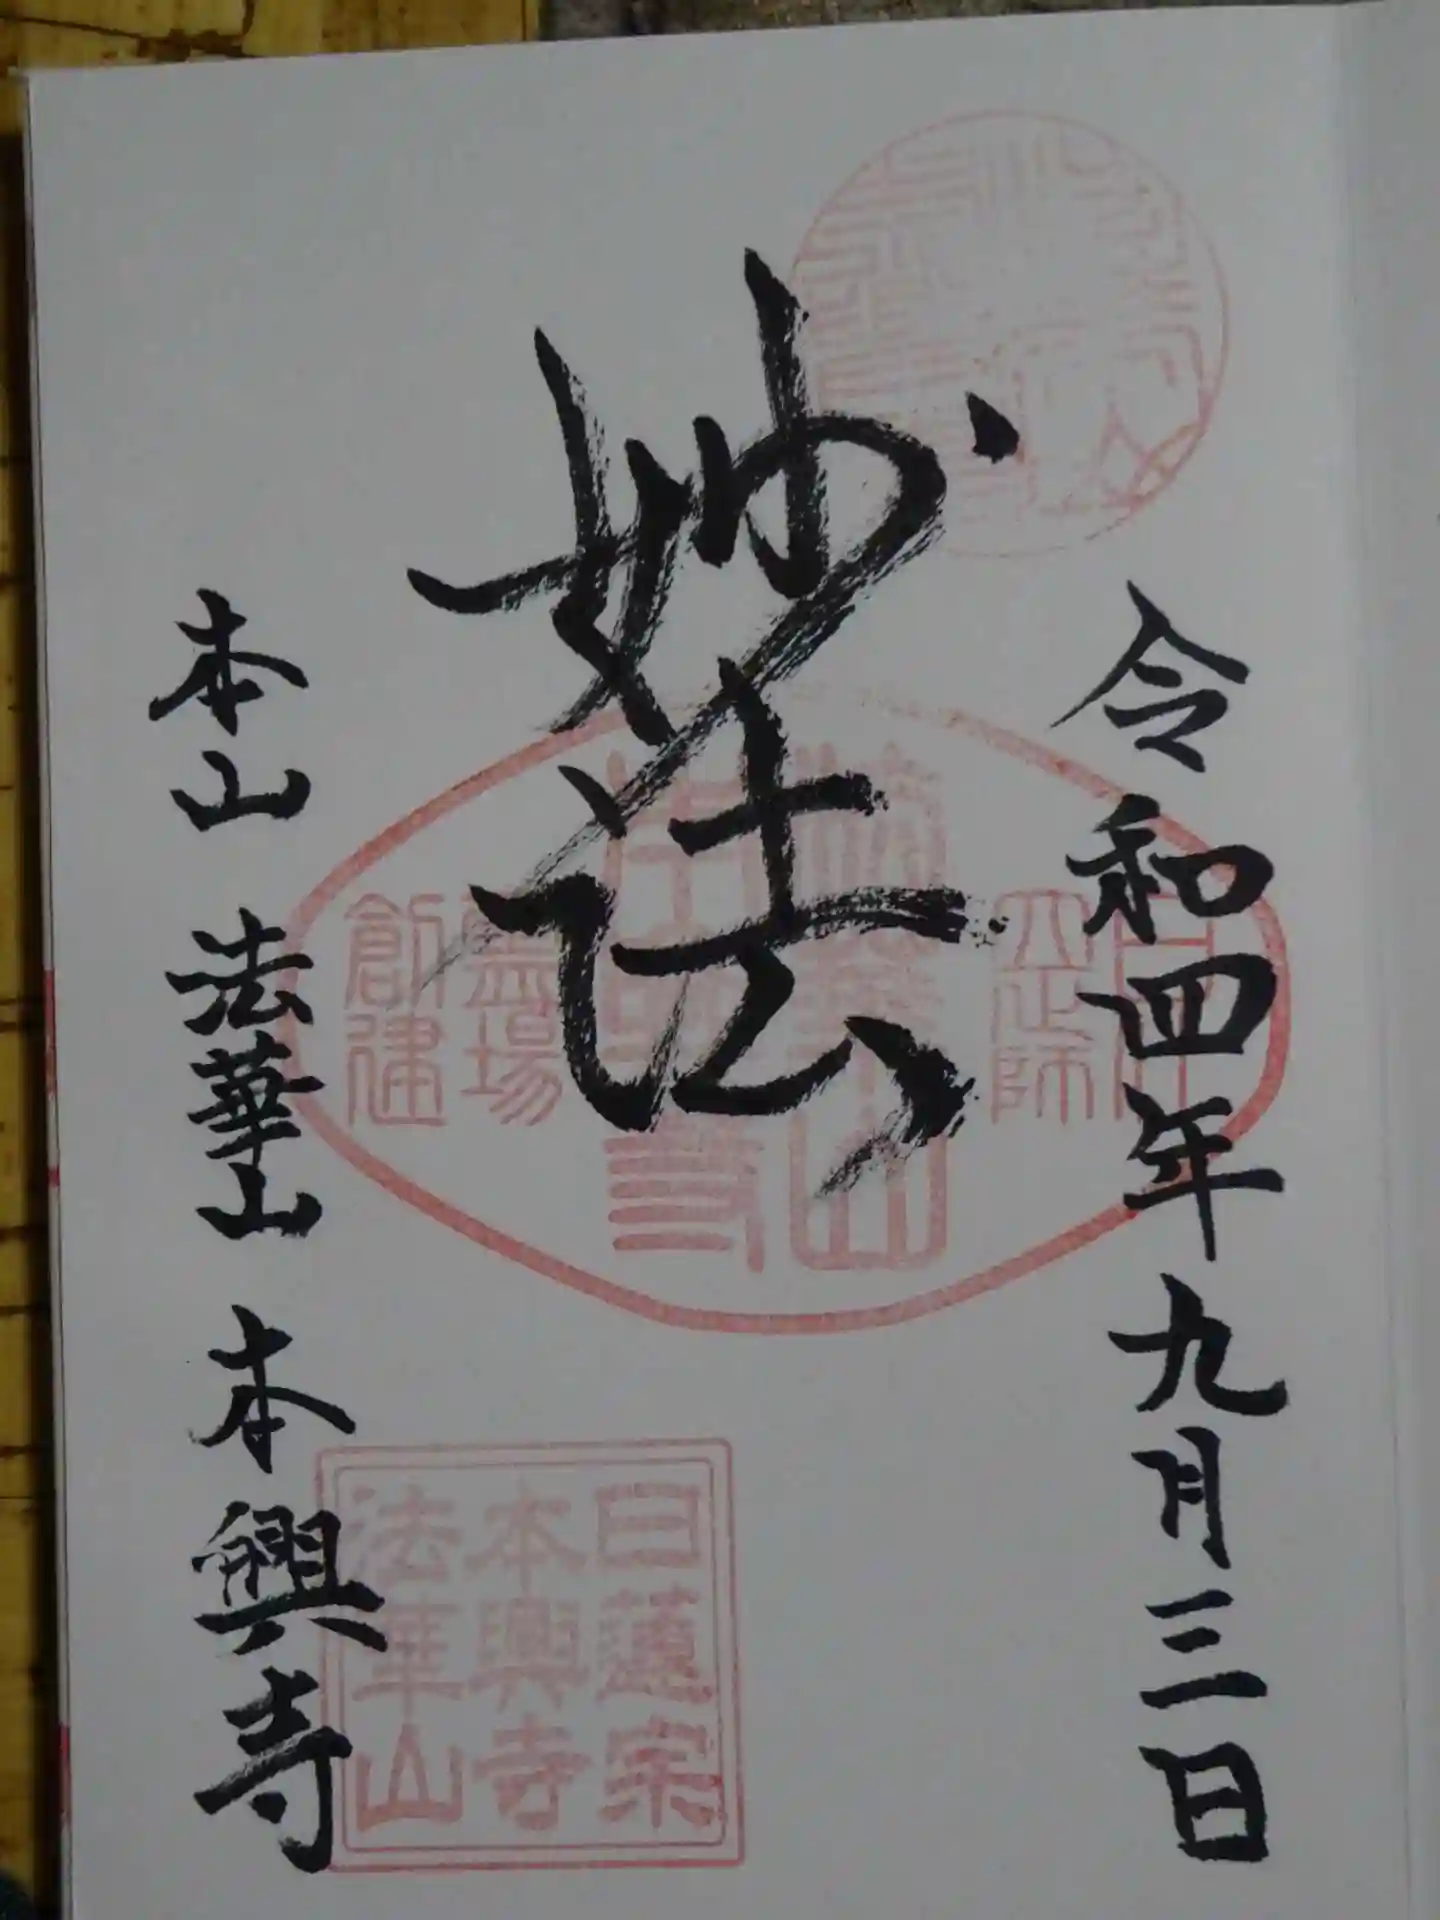 令和四年九月三日
妙法
本山 法華山 本興寺
四祖師
霊場
創建
日蓮宗
本興寺
法華山